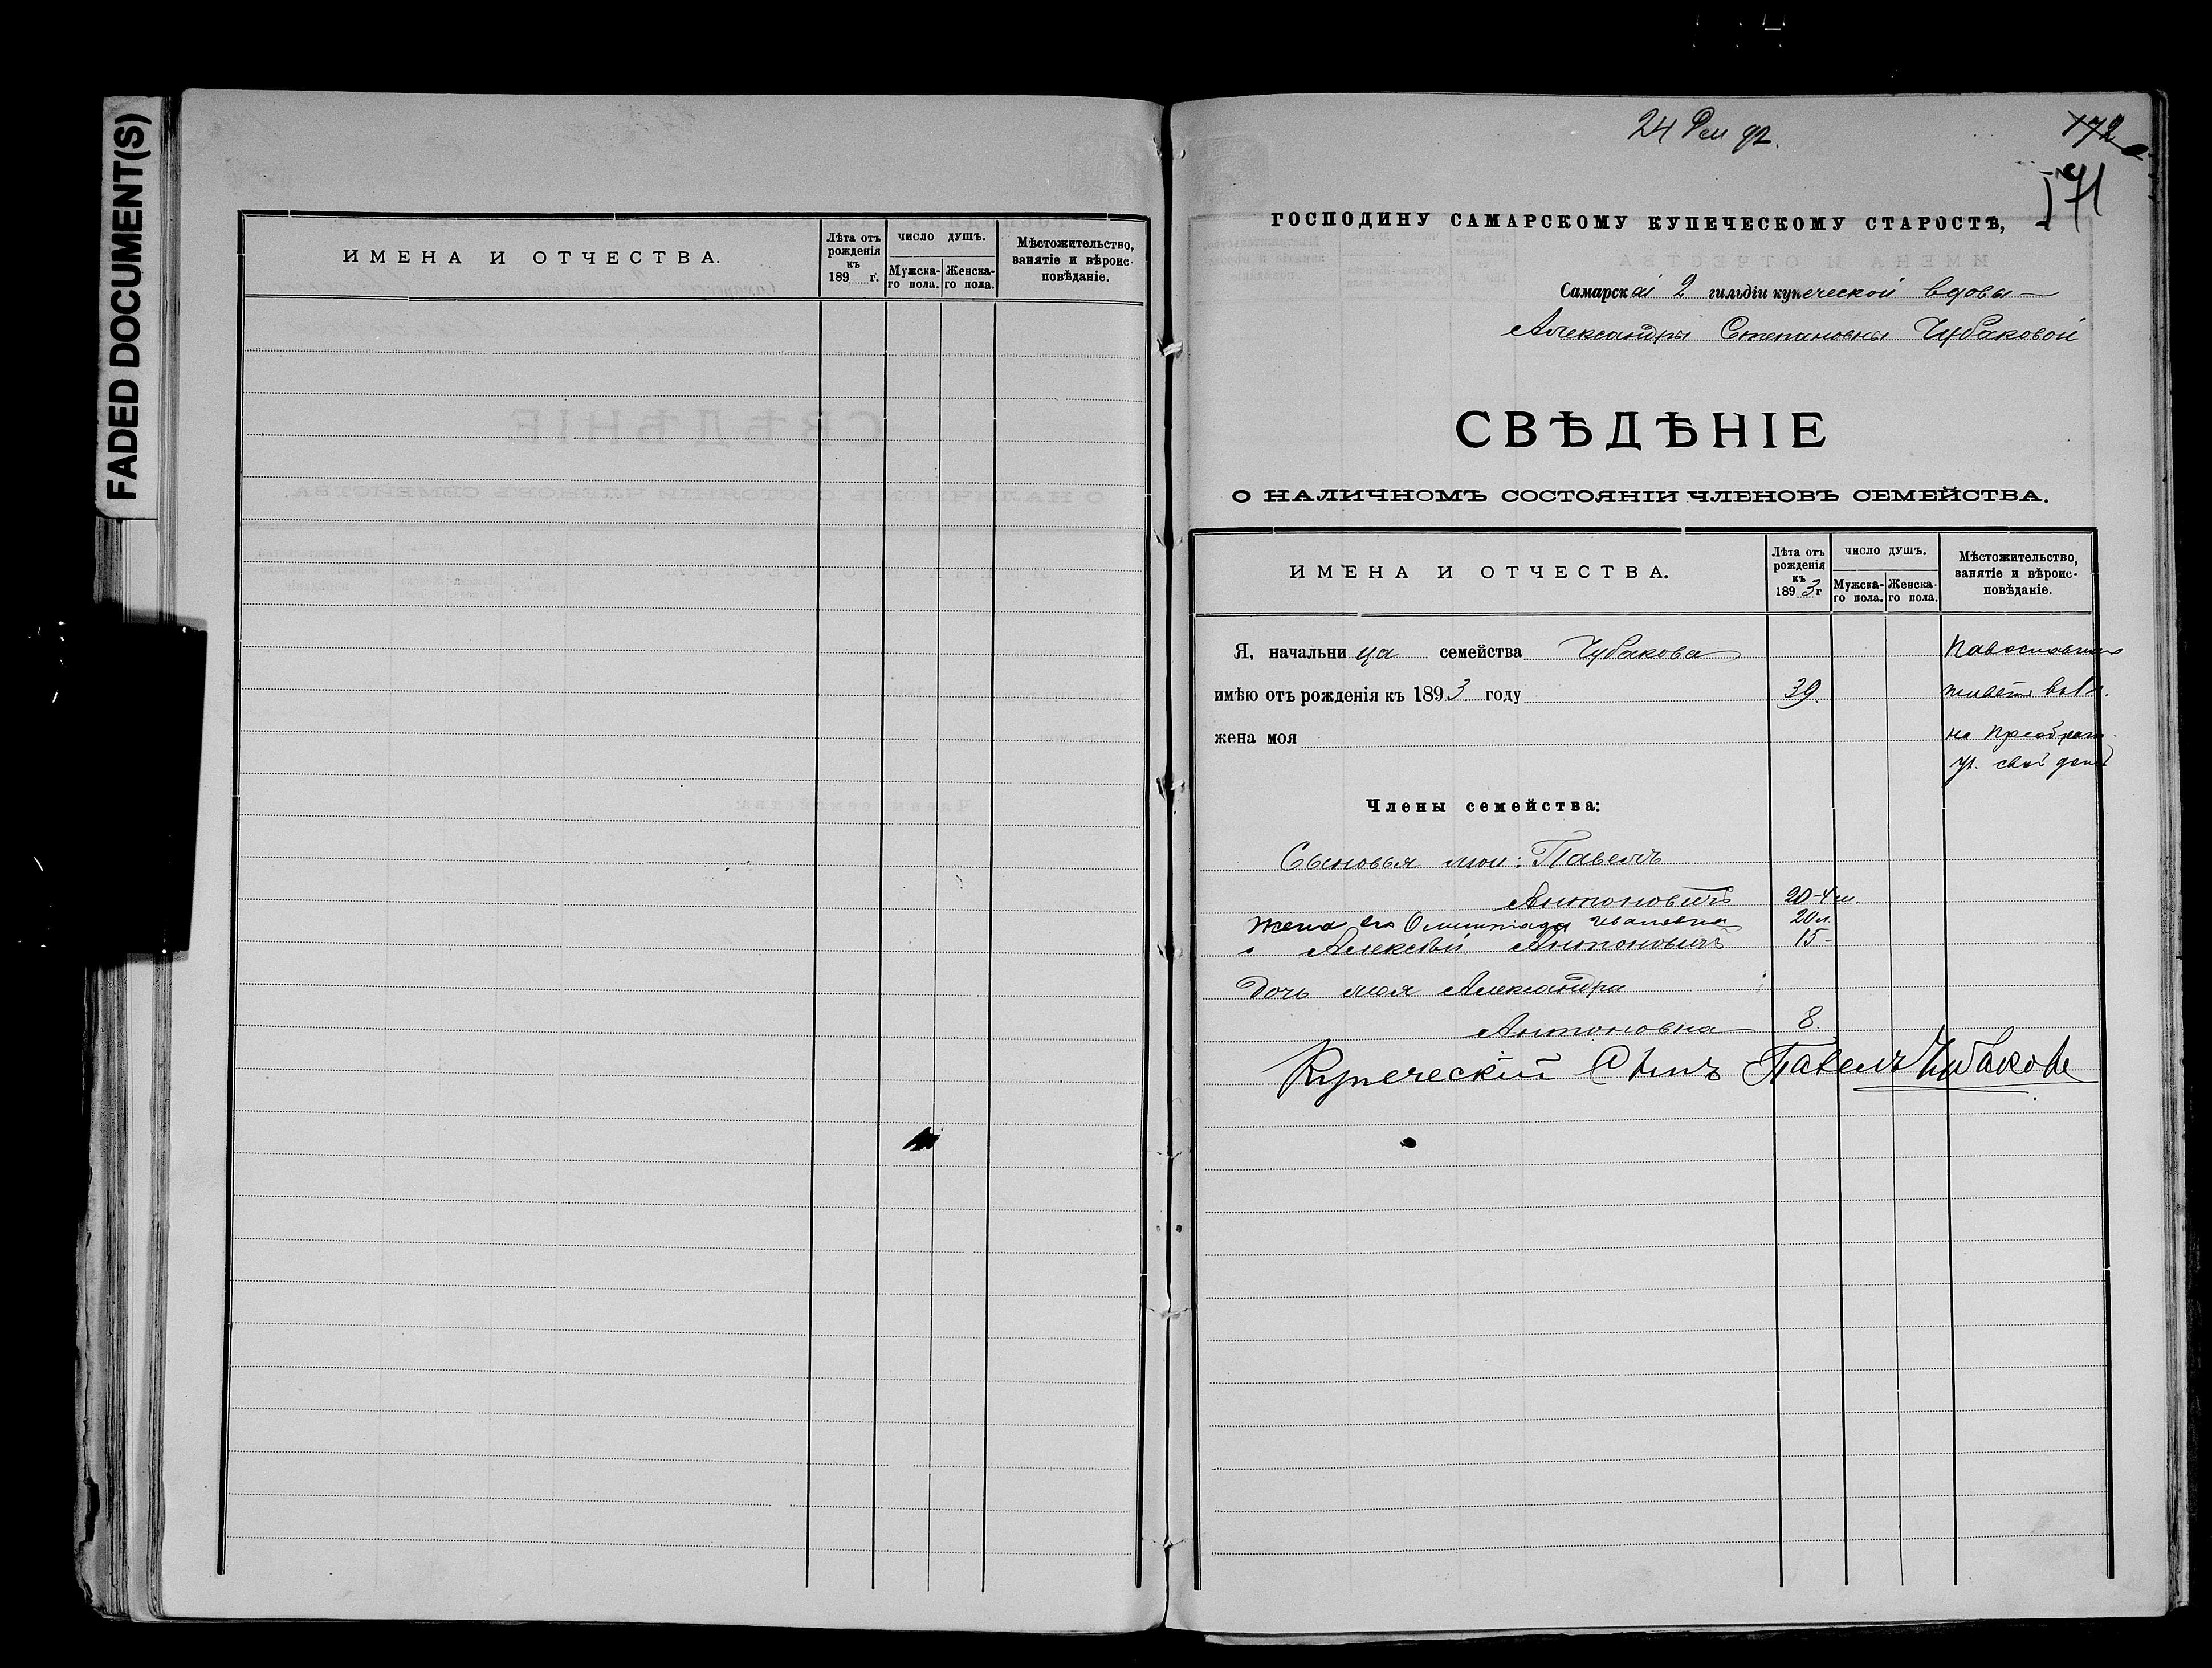 FADED DOCUMENT(S)
ИМЕНА И ОТЧЕСТВА.
Лѣта отъ
рожденія
къ
189 г.
ЧИСЛО ДУШЪ.
Мужска-
го пола.
Женска-
го пола.
Мѣстожительство,
занятіе и вѣроис-
повѣданіе.
24 92.
172
171
ГОСПОДИНУ САМАРСКОМУ КУПЕЧЕСКОМУ СТАРОСТѢ,
Самарской 2 гильдіи купеческой вдовы
Александры Степановны Чубаковой
СВѢДѢНІЕ
О НАЛИЧНОМЪ СОСТОЯНІИ ЧЛЕНОВЪ СЕМЕЙСТВА.
ИМЕНА И ОТЧЕСТВА.
Лѣта отъ
рожденія
къ
1893 г
ЧИСЛО ДУШЪ.
Мужска-
го пола.
Женска-
го пола.
Мѣстожительство,
занятіе и вѣроис-
повѣданіе.
Я, начальница семейства Чубакова
имѣю отъ рожденія къ 1893 году 39.
жена моя на Преображ.
ул. свой домъ
Члены семейства:
Сыновья мои: Павелъ
Антоновичъ 20
Жена его Олимпіада Ивановна 20 л.
Алексѣй Антоновичъ 15-
Дочь моя Александра
Антоновна 8.
Купеческій Сынъ Павелъ Чубаковъ